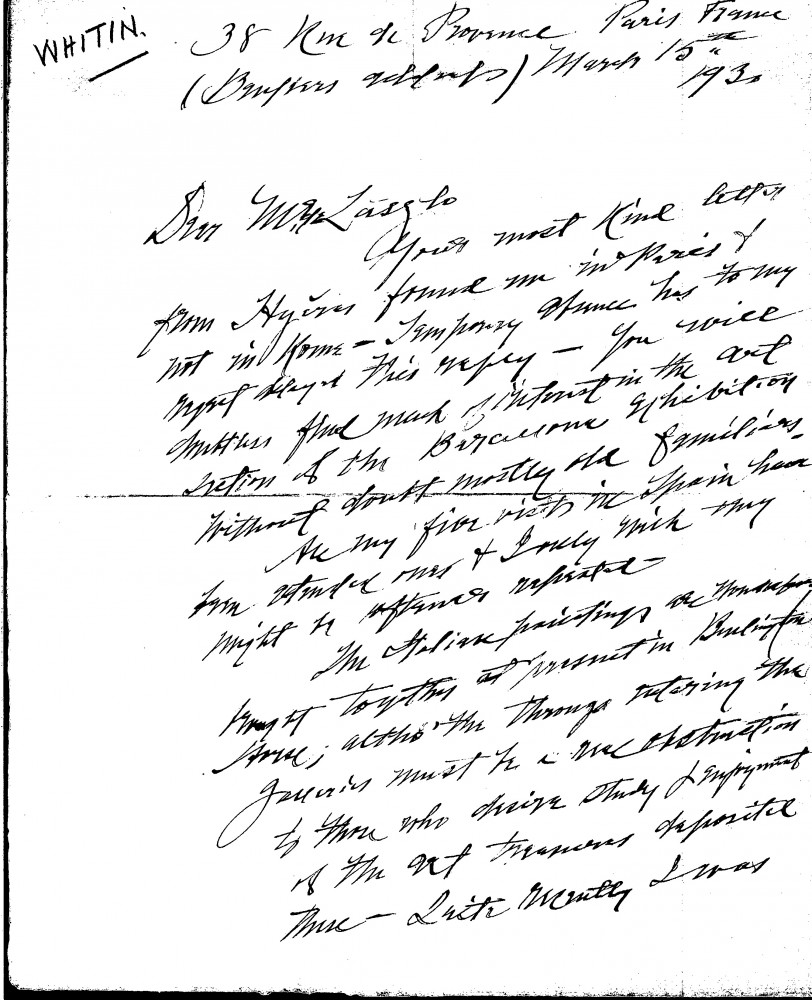 WHITIN.
38 Rue de Provence Paris France
(Bankers address) March 15th
1930
Dear Mr László
Your most kind letter
from Hyères found me in Paris &
not in Rome – Temporary absence has to my
regret delayed this reply – You will
doubtless find much interest in the art
section of the Barcelona Exhibition
without doubt mostly old familiars –
All my five visits in Spain have
been extended ones & I only wish they
might be oftener repeated –
The Italian paintings are wonderfully
brought together at present in Burlington
House; altho' the throngs entering the
galleries must be a real obstruction
to those who desire study & enjoyment
of the art treasures deposited
there – Quite recently I was